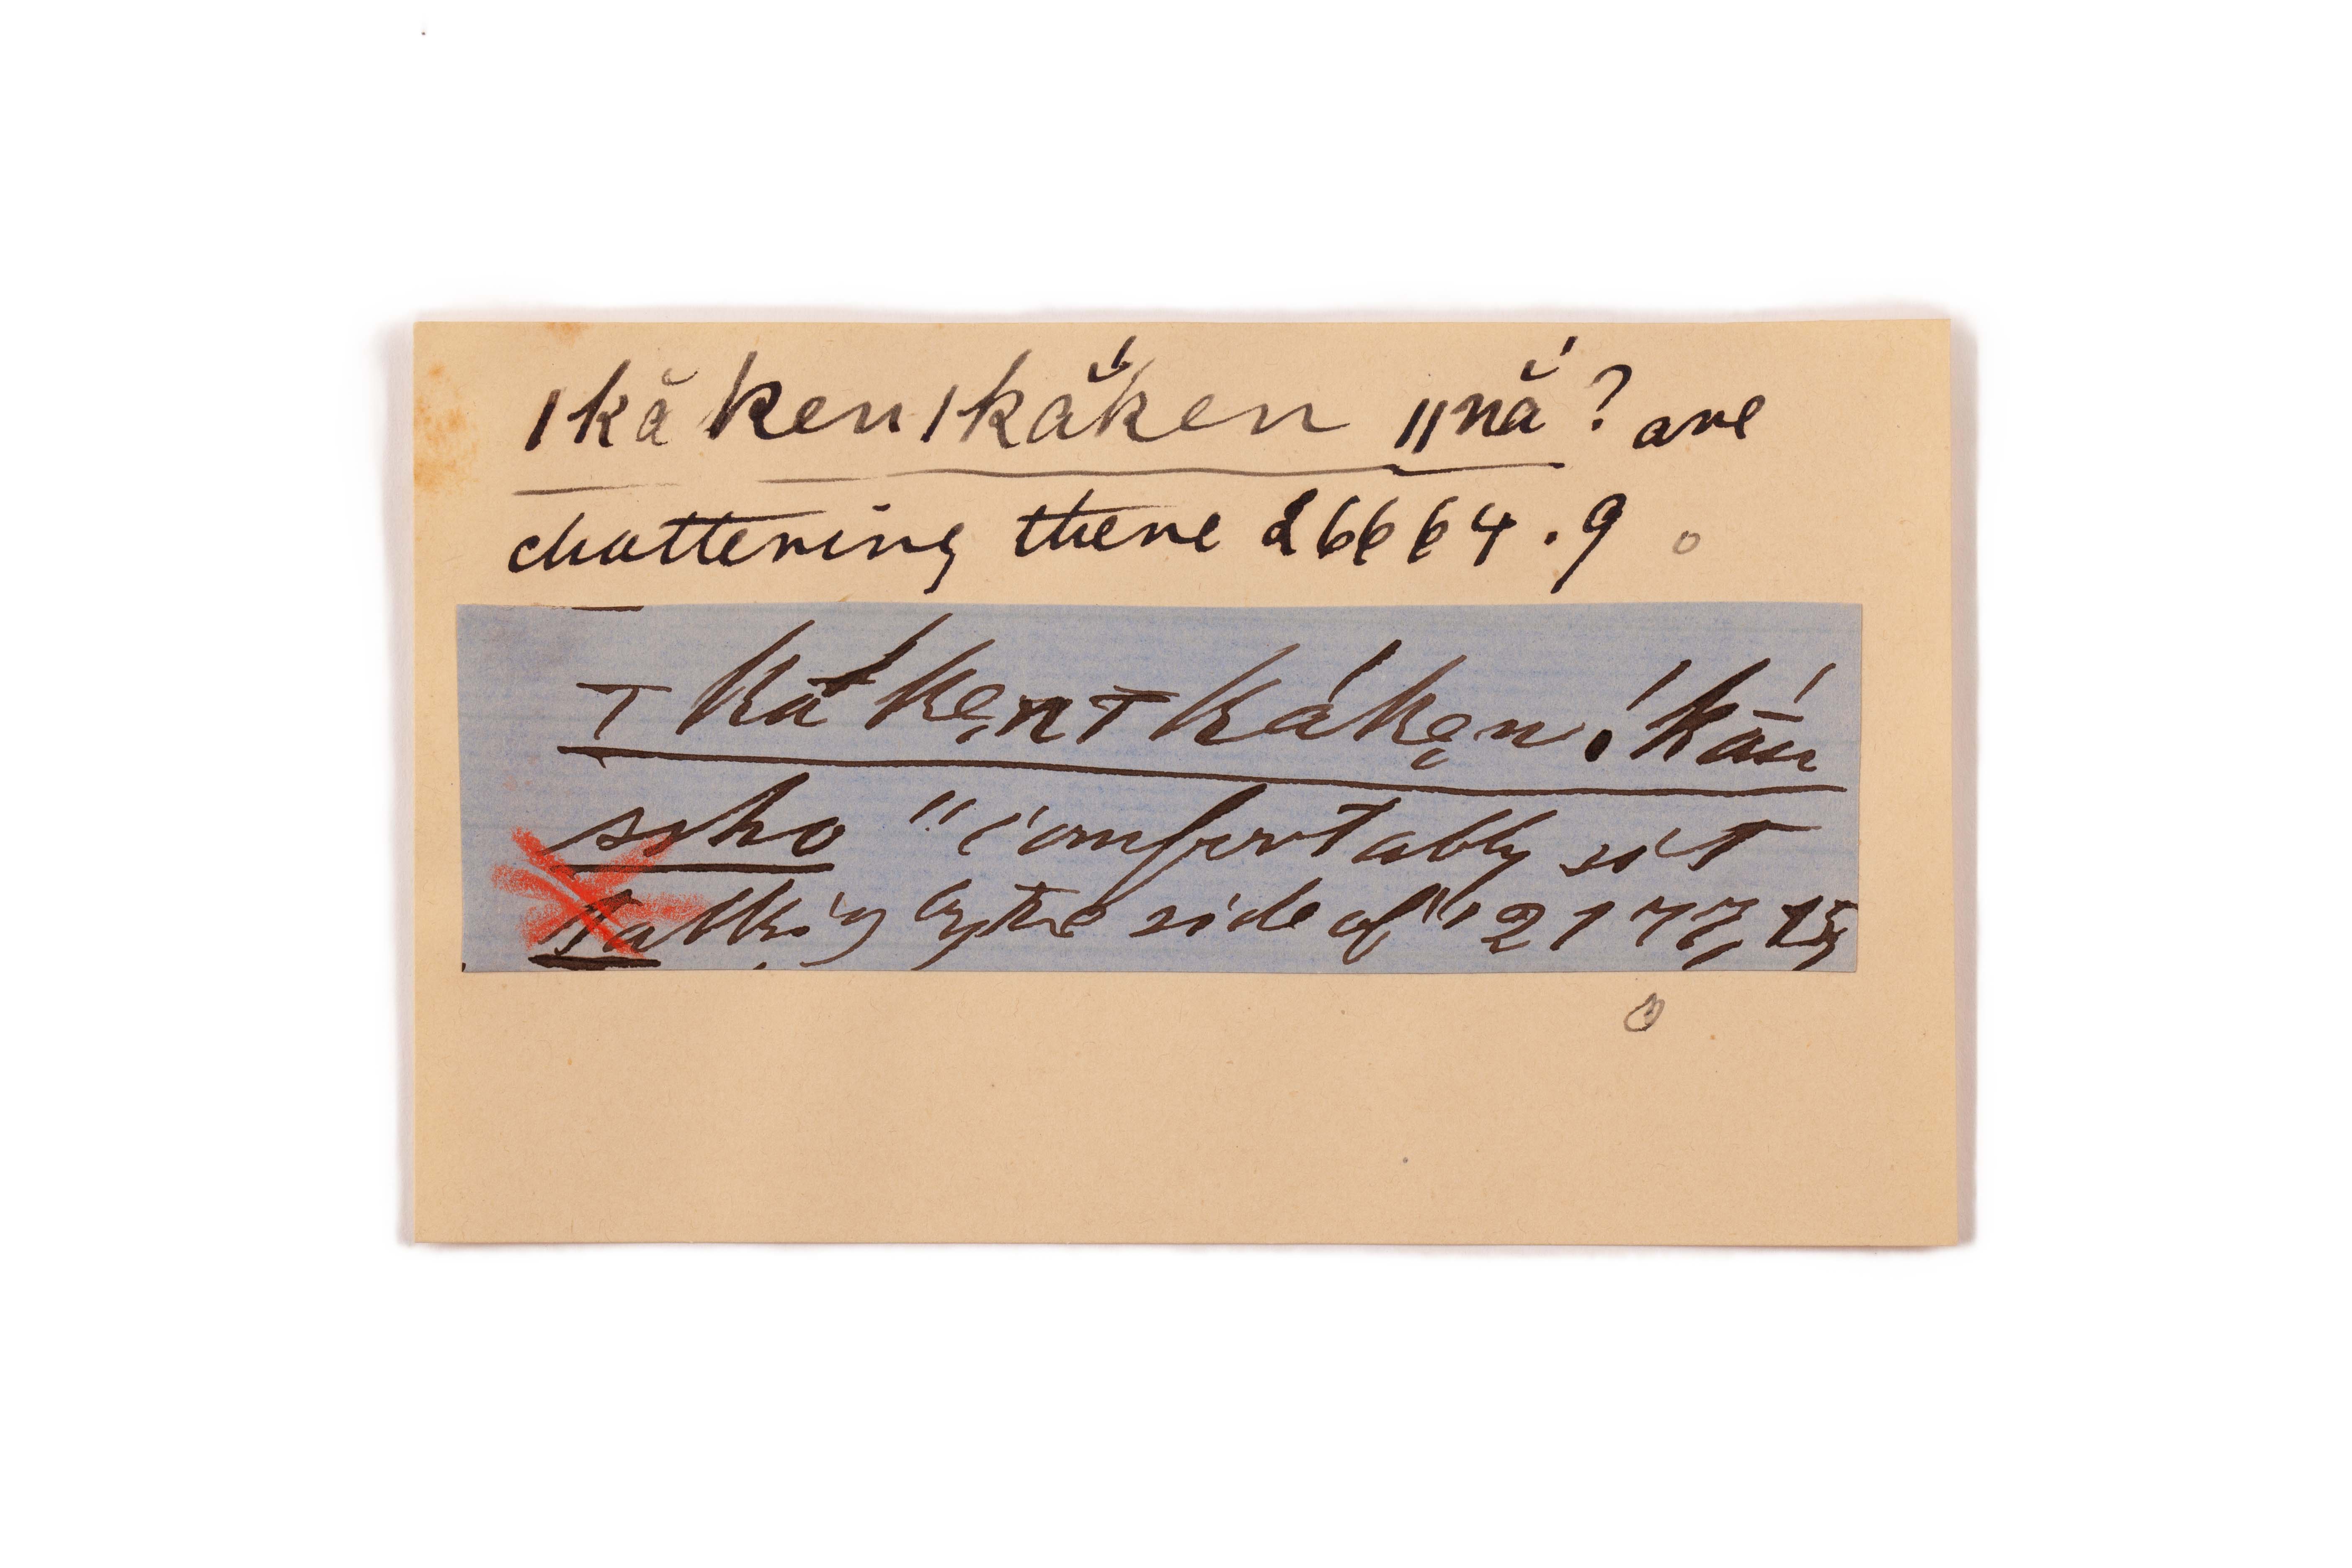 |kă ken|kắken ||nắ? are
chattering there 26664.9 o
⊤kákẹn⊤kákẹn, !kā́u
ssho "comfortably sit
talking by the side of" 2177, 15